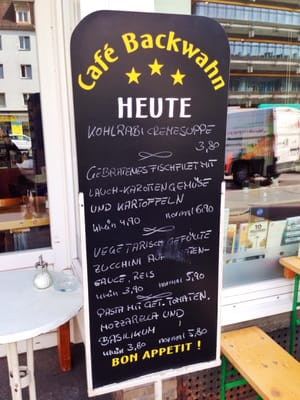 Café Backwahn
HEUTE
KOHLRABICREMESUPPE
3,80
GEBRATENES FISCHFILET MIT
LAUCH-KAROTTENGEMÜSE
UND KARTOFFELN
klein 4,90 normal 6,90
VEGETARISCH GEFÜLLTE
ZUCCHINI AUF
SAUCE, REIS
klein 3,90 normal 5,90
PASTA MIT GET. TOMATEN,
MOZZARELLA UND
BASILIKUM
klein 3,80 normal 5,80
BON APPETIT !